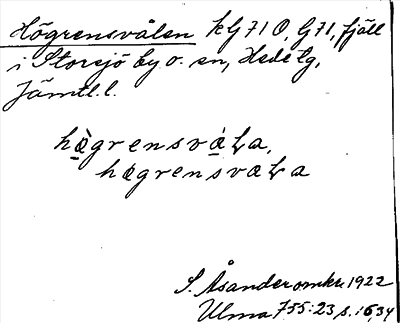 Högrensvålen kG 71 O, G 71, fjäll
i Storsjö by o. sn, Hede tg,
Jämtl. l.
hægrensvaLa,
hægrensvæLa
S. Åsander omkr. 1922
Ulma 755:23 s. 16, 34